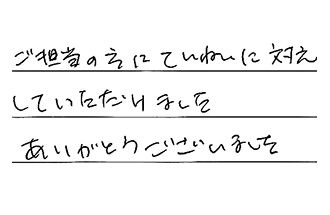 ご担当の方にていねいに対応
していただけました
ありがとうございました